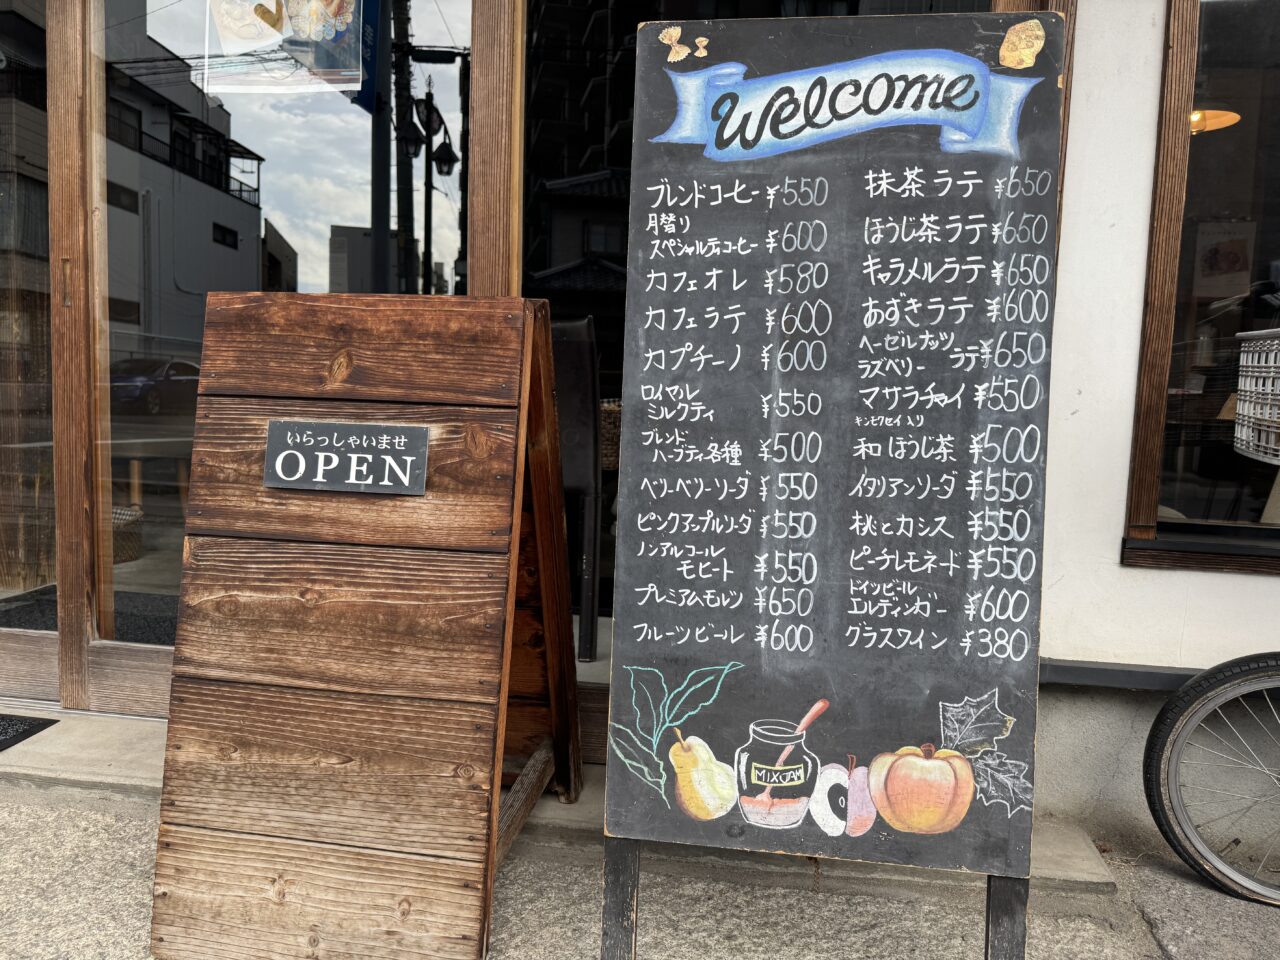 Welcome
ブレンドコーヒー ¥550
月替り
スペシャルティコーヒー ¥600
カフェオレ ¥580
カフェラテ ¥600
カプチーノ ¥600
ロイヤル
ミルクティ ¥550
ブレンド
ハーブティ各種 ¥500
ベリーベリーソーダ ¥550
ピンクアップルソーダ ¥550
ノンアルコール
モヒート ¥550
プレミアムモルツ ¥650
フルーツビール ¥600
抹茶ラテ ¥650
ほうじ茶ラテ ¥650
キャラメルラテ ¥650
あずきラテ ¥600
ヘーゼルナッツ
ラズベリー ラテ ¥650
マサラチャイ ¥550
キンモクセイ入り
和ほうじ茶 ¥500
イタリアンソーダ ¥550
桃とカシス ¥550
ピーチレモネード ¥550
ドイツビール
エルディンガー ¥600
グラスワイン ¥380
MIXJAM
いらっしゃいませ
OPEN